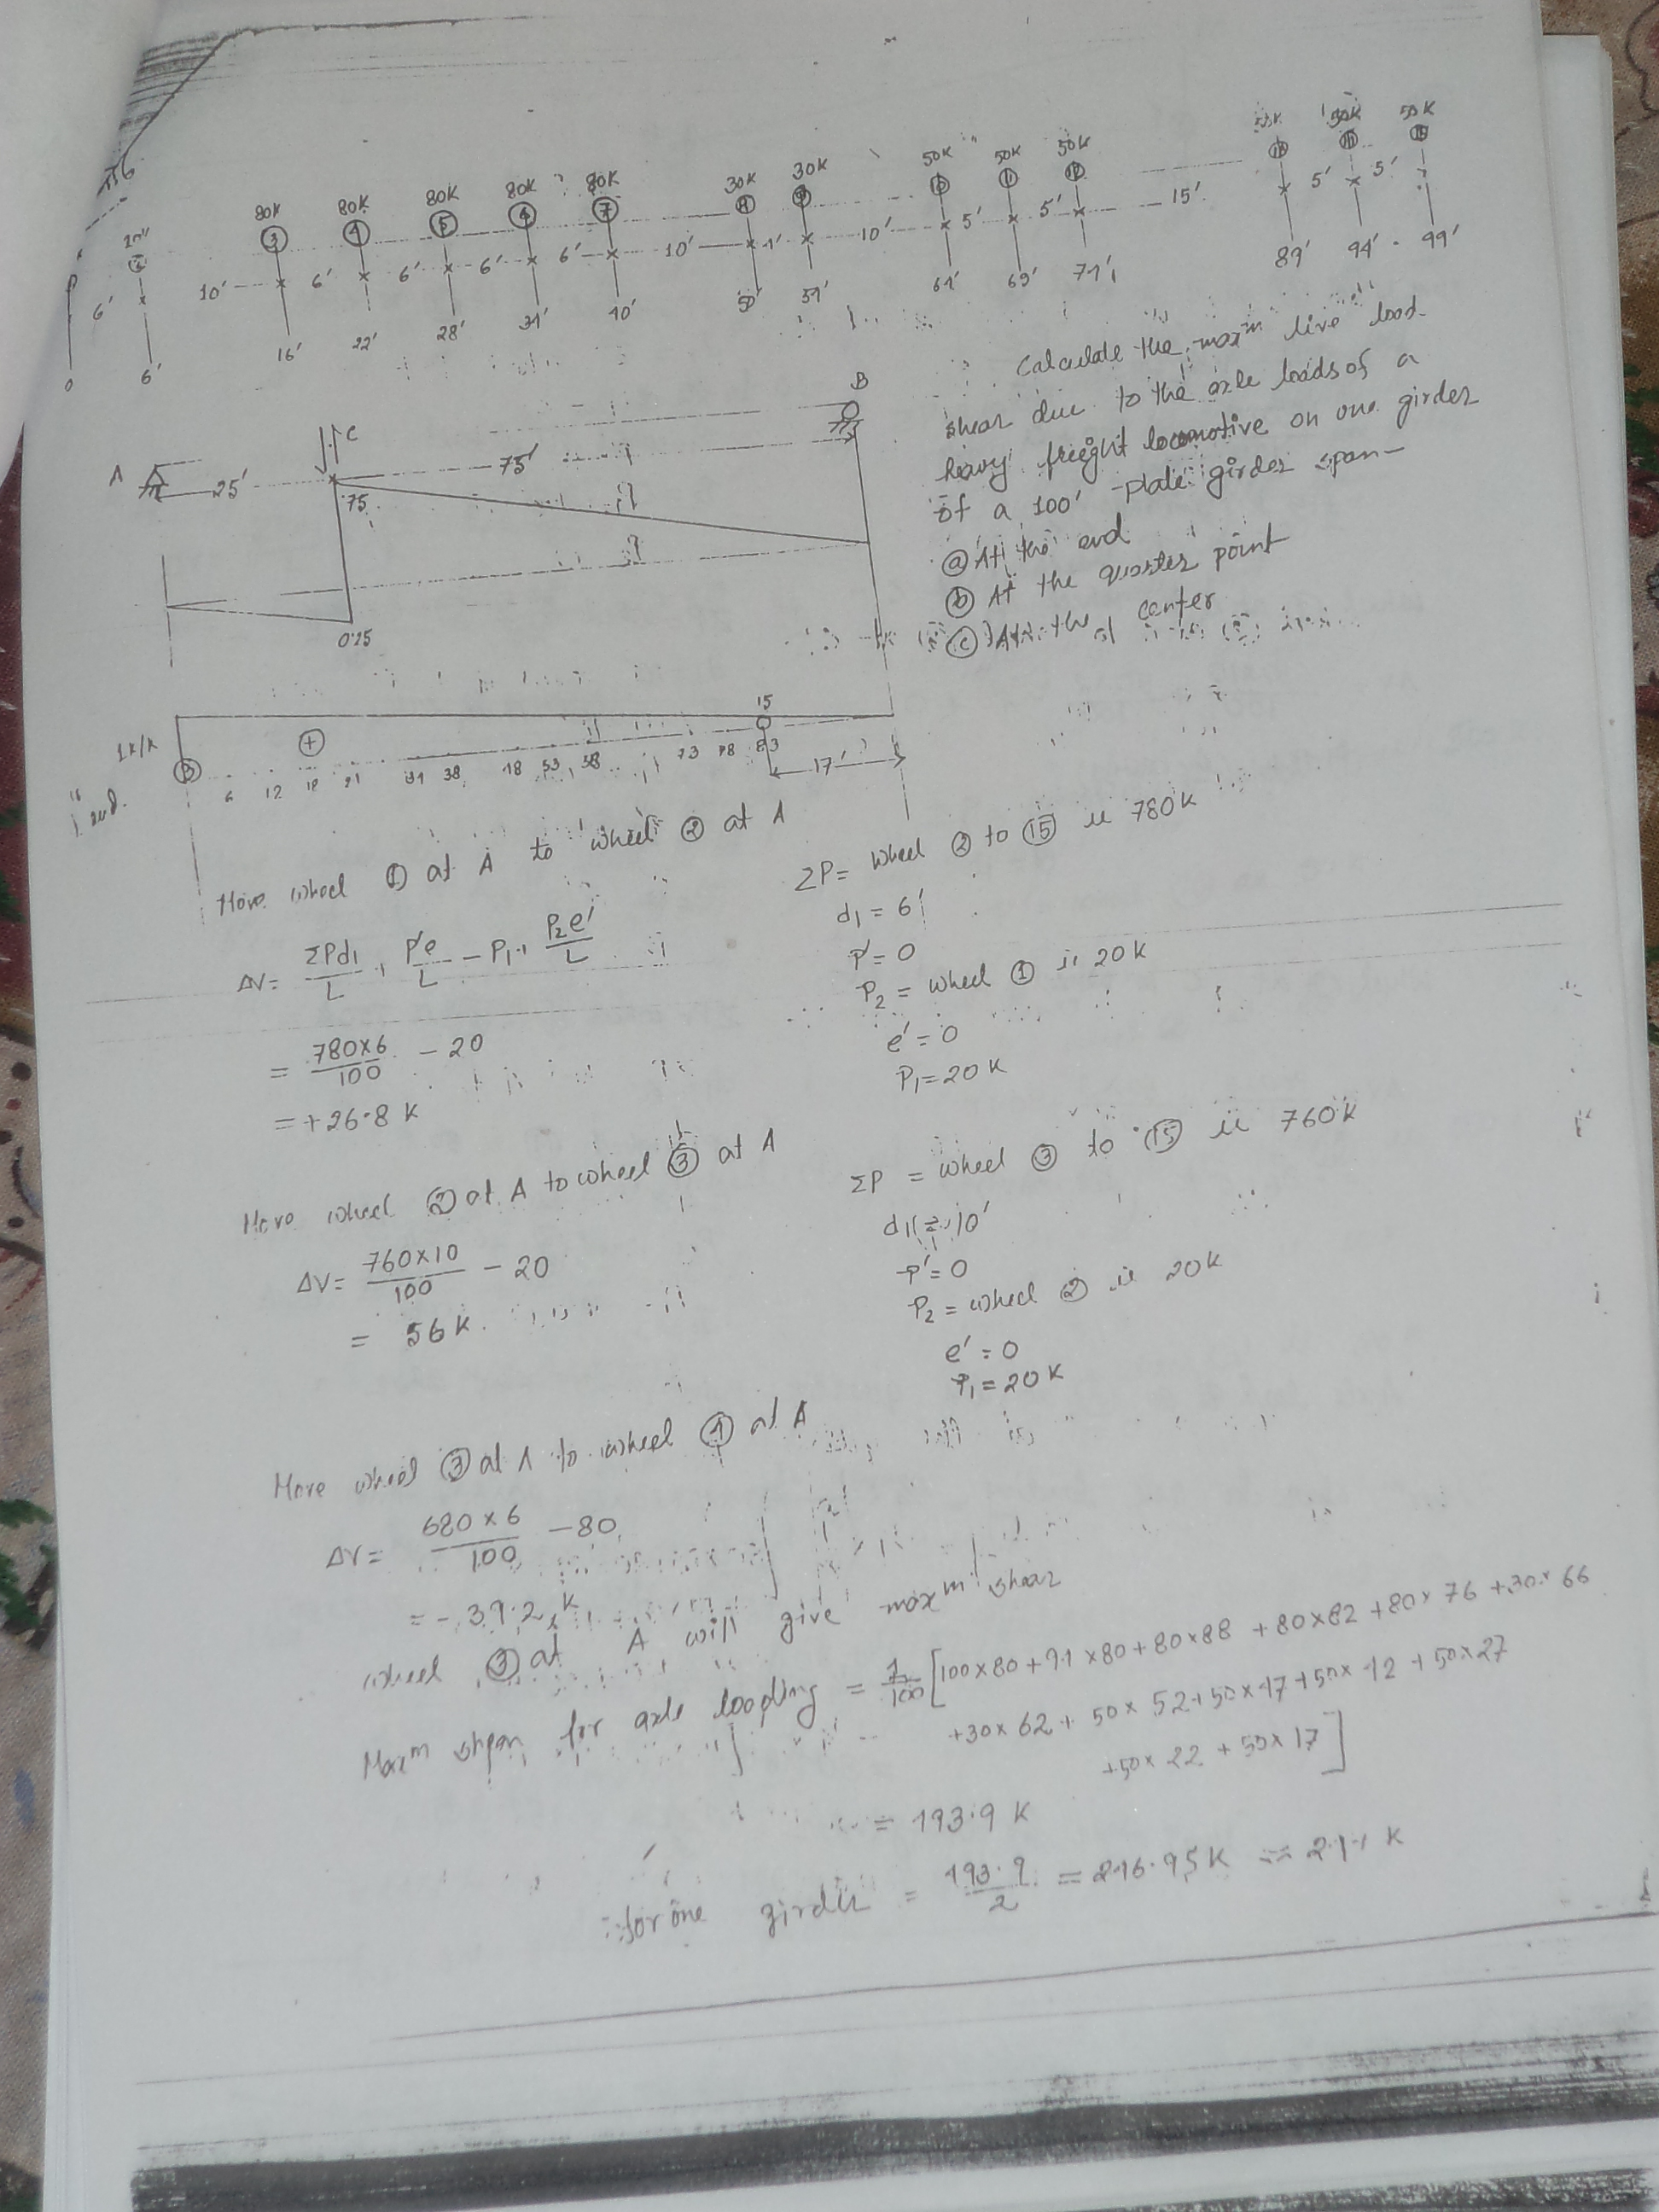 80K 80K 80K 80K 80K 30K 30K 50K 50K 50K 50K 50K 50K
② ③ ④ ⑤ ⑥ ⑦ ⑧ ⑨ ⑩ ⑪ ⑫
6' 10' 6' 6' 6' 6' 10' 4' 10' 5' 5' 15' 5' 5'
0 6' 16' 22' 28' 34' 40' 50' 54' 64' 69' 74' 89' 94' 99'
Calculate the maxm live load
shear due to the axle loads of a
heavy freeght locomotive on one girder
of a 100' plate girder span—
ⓐ At the end
ⓑ At the quarter point
ⓒ At the center
A C B
25' 75'
.75
0.25
1K/K
③ + 15
6 12 18 24 34 38 48 53 58 73 78 83
17'
Move wheel ① at A to wheel ② at A
ΔV = ΣPd₁/L + P'e/L - P₁ + P₂e'/L
= 780×6/100 - 20
= +26.8 K
ΣP = wheel ② to ⑮ is 780K
d₁ = 6'
P' = 0
P₂ = wheel ① is 20K
e' = 0
P₁ = 20 K
Move wheel ② at A to wheel ③ at A
ΔV = 760×10/100 - 20
= 56 K.
ΣP = wheel ③ to ⑮ is 760K
d₁ = 10'
P' = 0
P₂ = wheel ② is 20K
e' = 0
P₁ = 20K
Move wheel ③ at A to wheel ④ at A
ΔV = 680×6/100 - 80
= -39.2 K
wheel ③ at A will give maxm shear
Maxm shear for axle loading = 1/100 [100×80+94×80+80×88+80×82+80×76+30×66
+30×62+50×52+50×47+50×42+50×27
+50×22+50×17]
= 493.9 K
for one girder = 493.9/2 = 246.95K ≈ 247 K